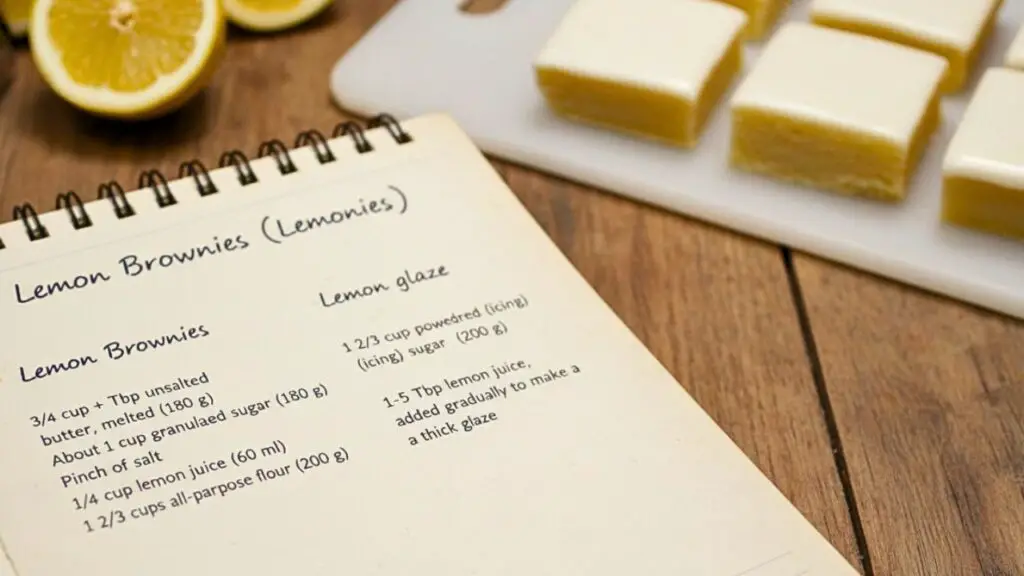 Lemon Brownies (Lemonies)
Lemon Brownies
3/4 cup + Tbp unsalted
butter, melted (180 g)
About 1 cup granulaed sugar (180 g)
Pinch of salt
1/4 cup lemon juice (60 ml)
1 2/3 cups all-parpose flour (200 g)
Lemon glaze
1 2/3 cup powedred (icing)
(icing) sugar (200 g)
1-5 Tbp lemon juice,
added gradually to make a
a thick glaze